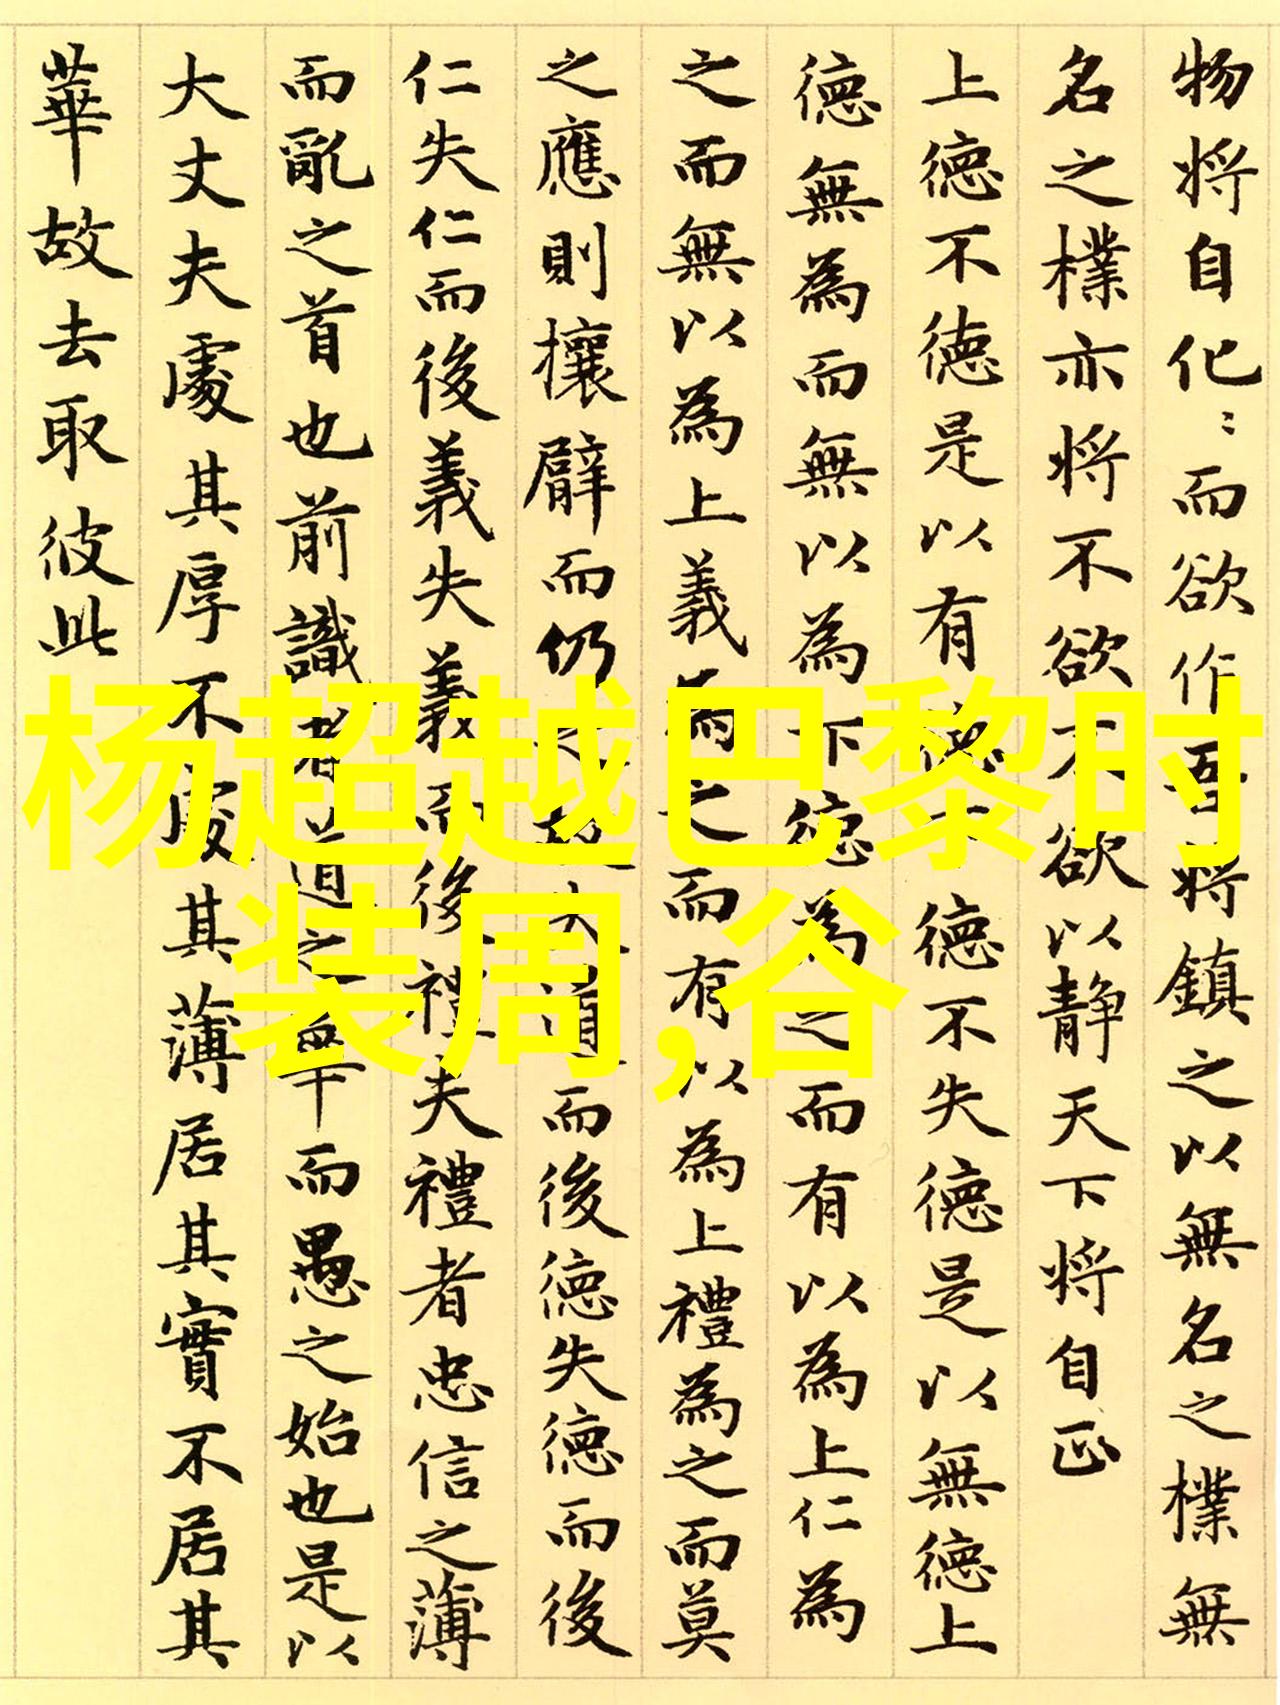 物将自化〻而欲作吾将鎮之以無名之樸無
名之樸亦将不欲不欲以静天下将自正
上德不德是以有德下德不失德是以無德上
德無為而無以為下德為之而有以為上仁為
之而無以為上義為之而有以為上禮為之而莫
之應則攘臂而仍之故失道而後德失德而後
仁失仁而後義失義而後禮夫禮者忠信之薄
而亂之首也前識者道之華而愚之始也是以
大丈夫處其厚不處其薄居其實不居其
華故去取彼此
杨超越巴黎时
装周,谷